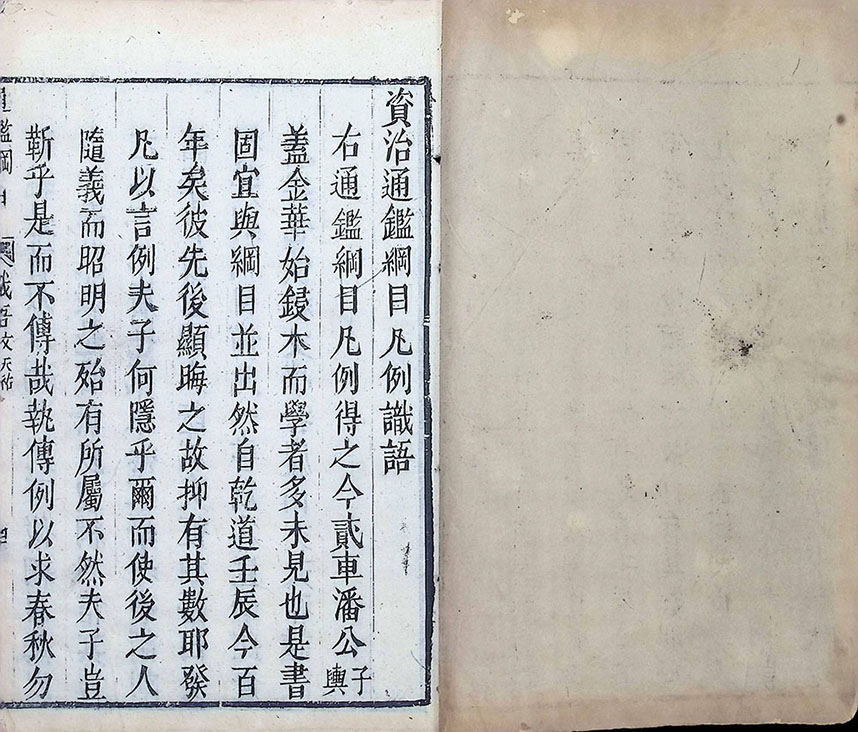 資治通鑑綱目凡例識語
右通鑑綱目凡例得之今貳車潘公子輿
蓋金華始鋟木而學者多未見也是書
固宜與綱目並出然自乾道壬辰今百
年矣彼先後顯晦之故抑有其數耶發
凡以言例夫子何隱乎爾而使後之人
隨義而昭明之殆有所屬不然夫子豈
靳乎是而不傳哉執傳例以求春秋勿
鑑綱目 識語文天祐